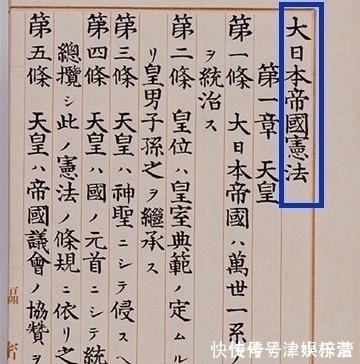 大日本帝國憲法
第一章 天皇
第一條 大日本帝國ハ萬世一系
ヲ統治ス
第二條 皇位ハ皇室典範ノ定ムル
リ皇男子孫之ヲ繼承ス
第三條 天皇ハ神聖ニシテ侵スヘ
第四條 天皇ハ國ノ元首ニシテ統
總攬シ此ノ憲法ノ條規ニ依リ之
第五條 天皇ハ帝國議會ノ協贊ヲ